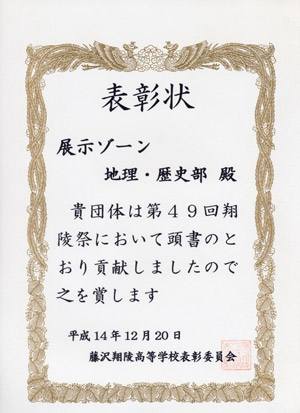 表彰状
展示ゾーン
地理・歴史部 殿
貴団体は第49回翔
陵祭において頭書のと
おり貢献しましたので
之を賞します
平成14年12月20日
藤沢翔陵高等学校表彰委員会